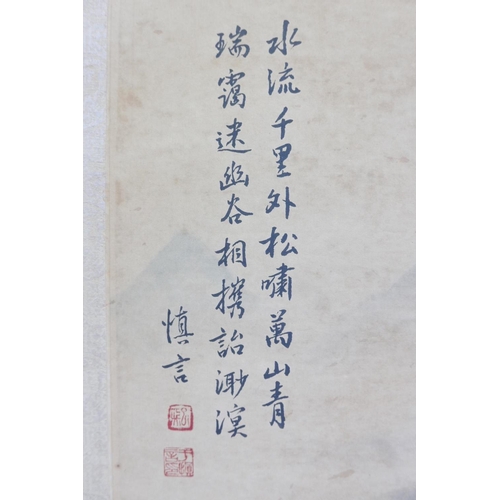 水流千里外松嘯萬山青
瑞靄迷幽谷相攜詒渺溟
慎言